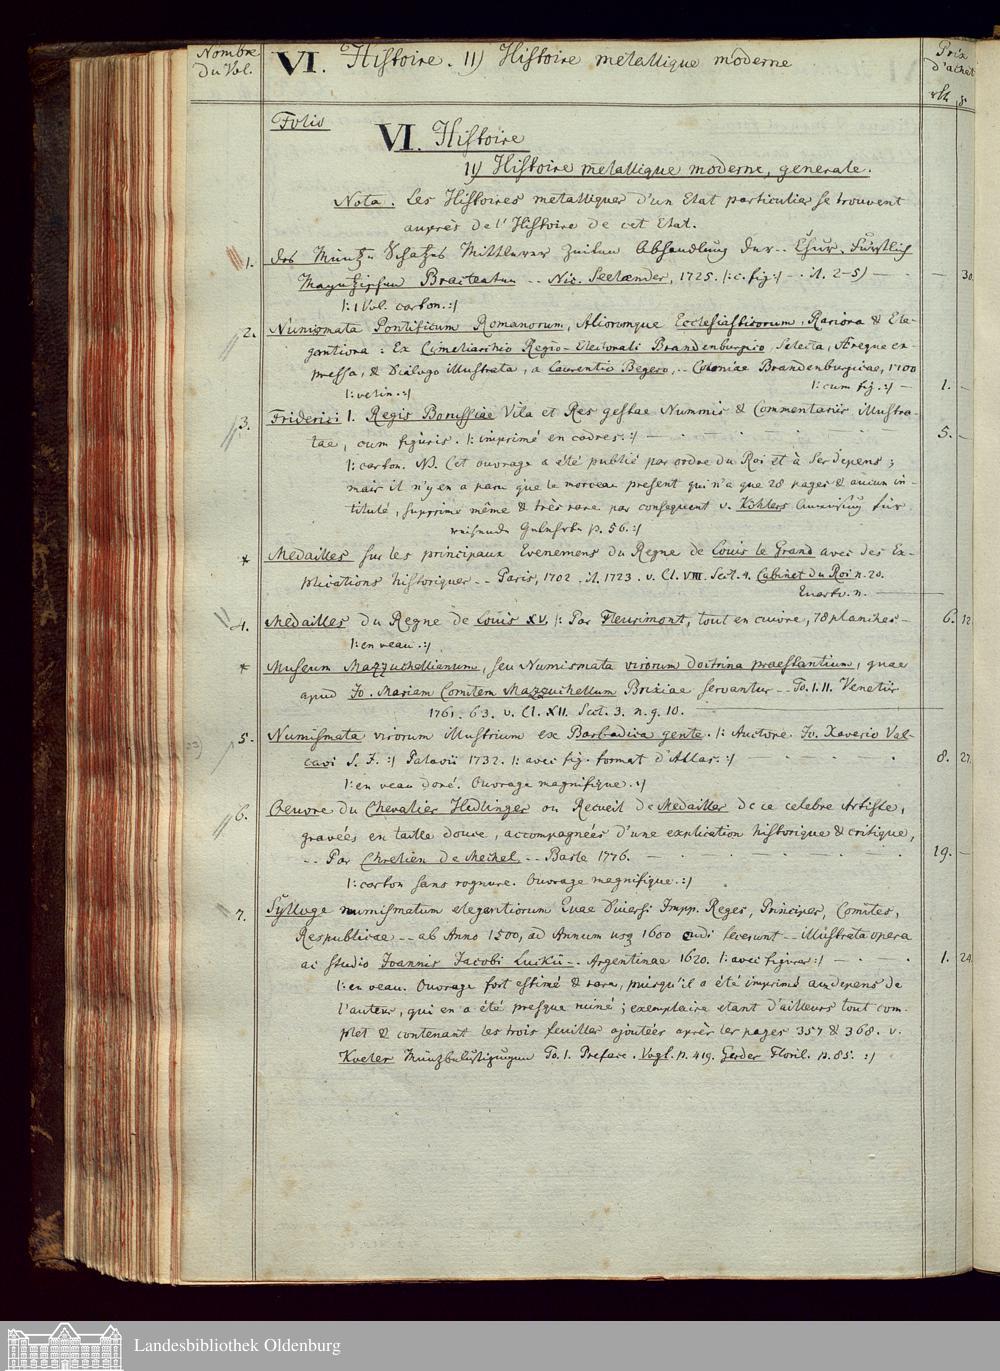 Nombre
Du Vol.
VI. Histoire. 11) Histoire metallique moderne
Prix
d'achat
rth. g.
Folio
VI. Histoire
11) Histoire metallique moderne, generale.
Nota. Les Histoires metalliques d'un Etat particulier se trouvent
auprès de l'Histoire de cet Etat.
1. Des Müntz-Schatzes Mittlerer Zeiten Abhandlung der -- Chur-Fürstlich
Mayntzischen Bracteaten -- Nic. Seelænder, 1725. |: c. fig :| -- it. 2-5) — 30.
|: 1 Vol. carton. :|
2. Numismata Pontificum Romanorum, Aliorumque Ecclesiasticorum, Rariora & Ele-
gantiora : Ex Cimeliarchio Regio-Electorali Brandenburgico, Selecta, Æreque ex-
pressa, & Dialogo illustrata, a Laurentio Begero, -- Coloniae Brandenburgicae, 1700
|: velin. :| |: cum fig. :| — 1. —
3. Friderici I. Regis Borussiae Vita et Res gestae Nummis & Commentariis illustra-
tae, cum figuris. |: imprimé en cadres. :| — 5. —
|: carton. NB. Cet ouvrage a été publié par ordre du Roi et à ses depens ;
mais il n'y en a paru que le morceau present qui n'a que 28 pages & aucun in-
titulé, supprimé même & très rare par consequent v. Köhlers Anweisung für
reisende Gelehrte p. 56. :|
* Medailles sur les principaux Evenemens du Regne de Louis le Grand avec des Ex-
plications historiques -- Paris, 1702. it. 1723. v. Cl. VIII. Sect. 4. Cabinet du Roi n. 20.
n. —
4. Medailles du Regne de Louis XV. |: Par Fleurimont, tout en cuivre, 78 planches — 6. 12
|: en veau. :|
* Museum Mazzuchellianum, seu Numismata virorum doctrina praestantium, quae
apud Jo. Mariam Comitem Mazzuchellum Brixiae servantur -- To. I. II. Venetiis
1761. 63. v. Cl. XII. Sect. 3. n. 9. 10. —
5. Numismata virorum illustrium ex Barbadica gente. |: Auctore Jo. Xaverio Val-
cavi S. J. :| Patavii 1732. |: avec fig. format d'Atlas. :| 8. 27.
|: en veau doré. Ouvrage magnifique. :|
6. Oeuvre du Chevalier Hedlinger ou Recueil de Medailles de ce celebre Artiste,
gravées en taille douce, accompagnées d'une explication historique & critique,
-- Par Chretien de Mechel -- Basle 1776. — 19. —
|: carton sans rognure. Ouvrage magnifique. :|
7. Sylloge numismatum elegantiorum Quae Diversi Impp. Reges, Principes, Comites,
Respublicae -- ab Anno 1500, ad Annum usq 1600 cudi fecerunt -- illustrata opera
ac studio Joannis Jacobi Luckii -- Argentinae 1620. |: avec figures :| — 1. 24.
|: en veau. Ouvrage fort estimé & rare, puisqu'il a été imprimé au depens de
l'auteur, qui en a été presque ruiné ; exemplaire etant d'ailleurs tout com-
plet & contenant les trois feuilles ajoutées après les pages 357 & 368. v.
Koeler Müntzbelustigungen To. I. Preface. Vogt. p. 419. Gerdes Floril. p. 85. :|
Landesbibliothek Oldenburg